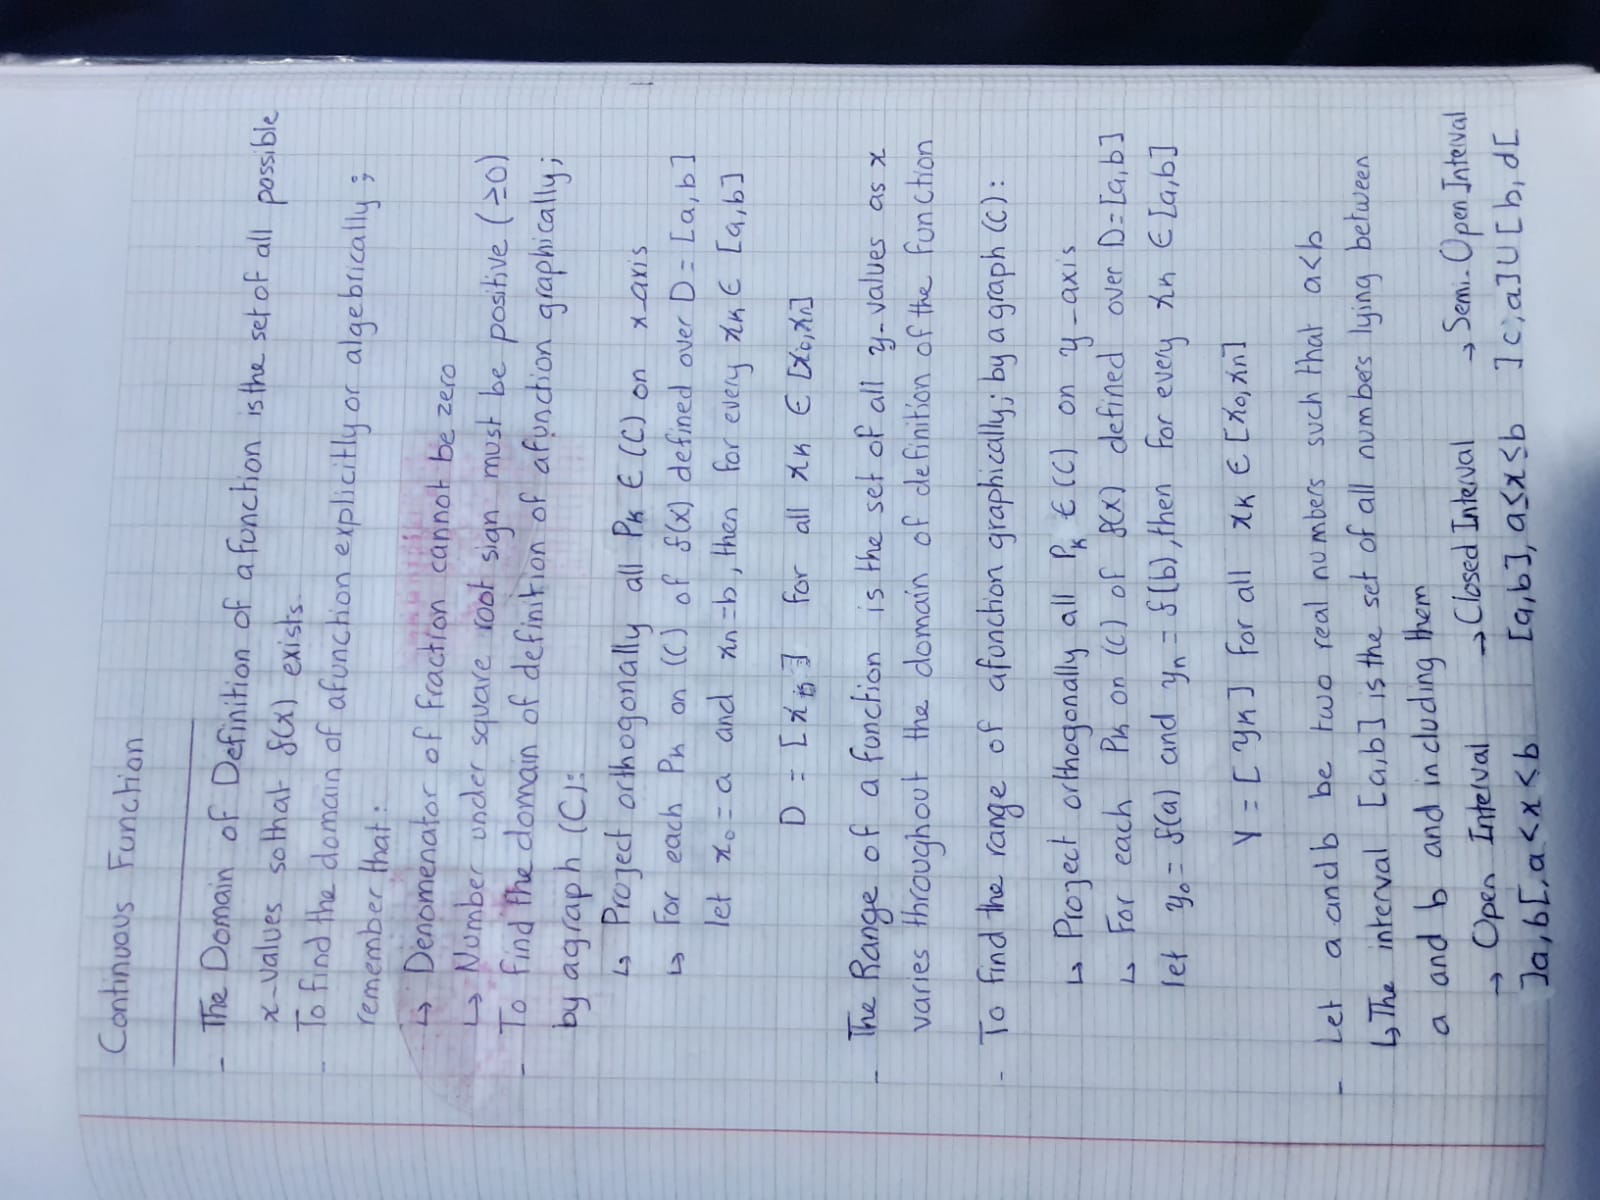 Continuous Function
- The Domain of Definition of a function is the set of all possible
x-values so that f(x) exists.
- To find the domain of a function explicitly or algebrically;
remember that:
↳ Denomenator of fraction cannot be zero
↳ Number under square root sign must be positive (≥0)
- To find the domain of definition of a function graphically;
by a graph (C):
↳ Project orthogonally all Pₖ ∈ (C) on x-axis
↳ For each Pₖ on (C) of f(x) defined over D = [a,b]
let x₀ = a and xₙ = b, then for every xₖ ∈ [a,b]
D = [x ] for all xₖ ∈ [x₀,xₙ]
- The Range of a function is the set of all y-values as x
varies throughout the domain of definition of the function
- To find the range of a function graphically; by a graph (C):
↳ Project orthogonally all Pₖ ∈ (C) on y-axis
↳ For each Pₖ on (C) of f(x) defined over D=[a,b]
let y₀ = f(a) and yₙ = f(b), then for every xₖ ∈ [a,b]
Y = [yₖ] for all xₖ ∈ [x₀,xₙ]
- Let a and b be two real numbers such that a<b
↳ The interval [a,b] is the set of all numbers lying between
a and b and including them
→ Open Interval → Closed Interval → Semi-Open Interval
]a,b[, a<x<b [a,b], a≤x≤b ]c;a]∪[b,d[